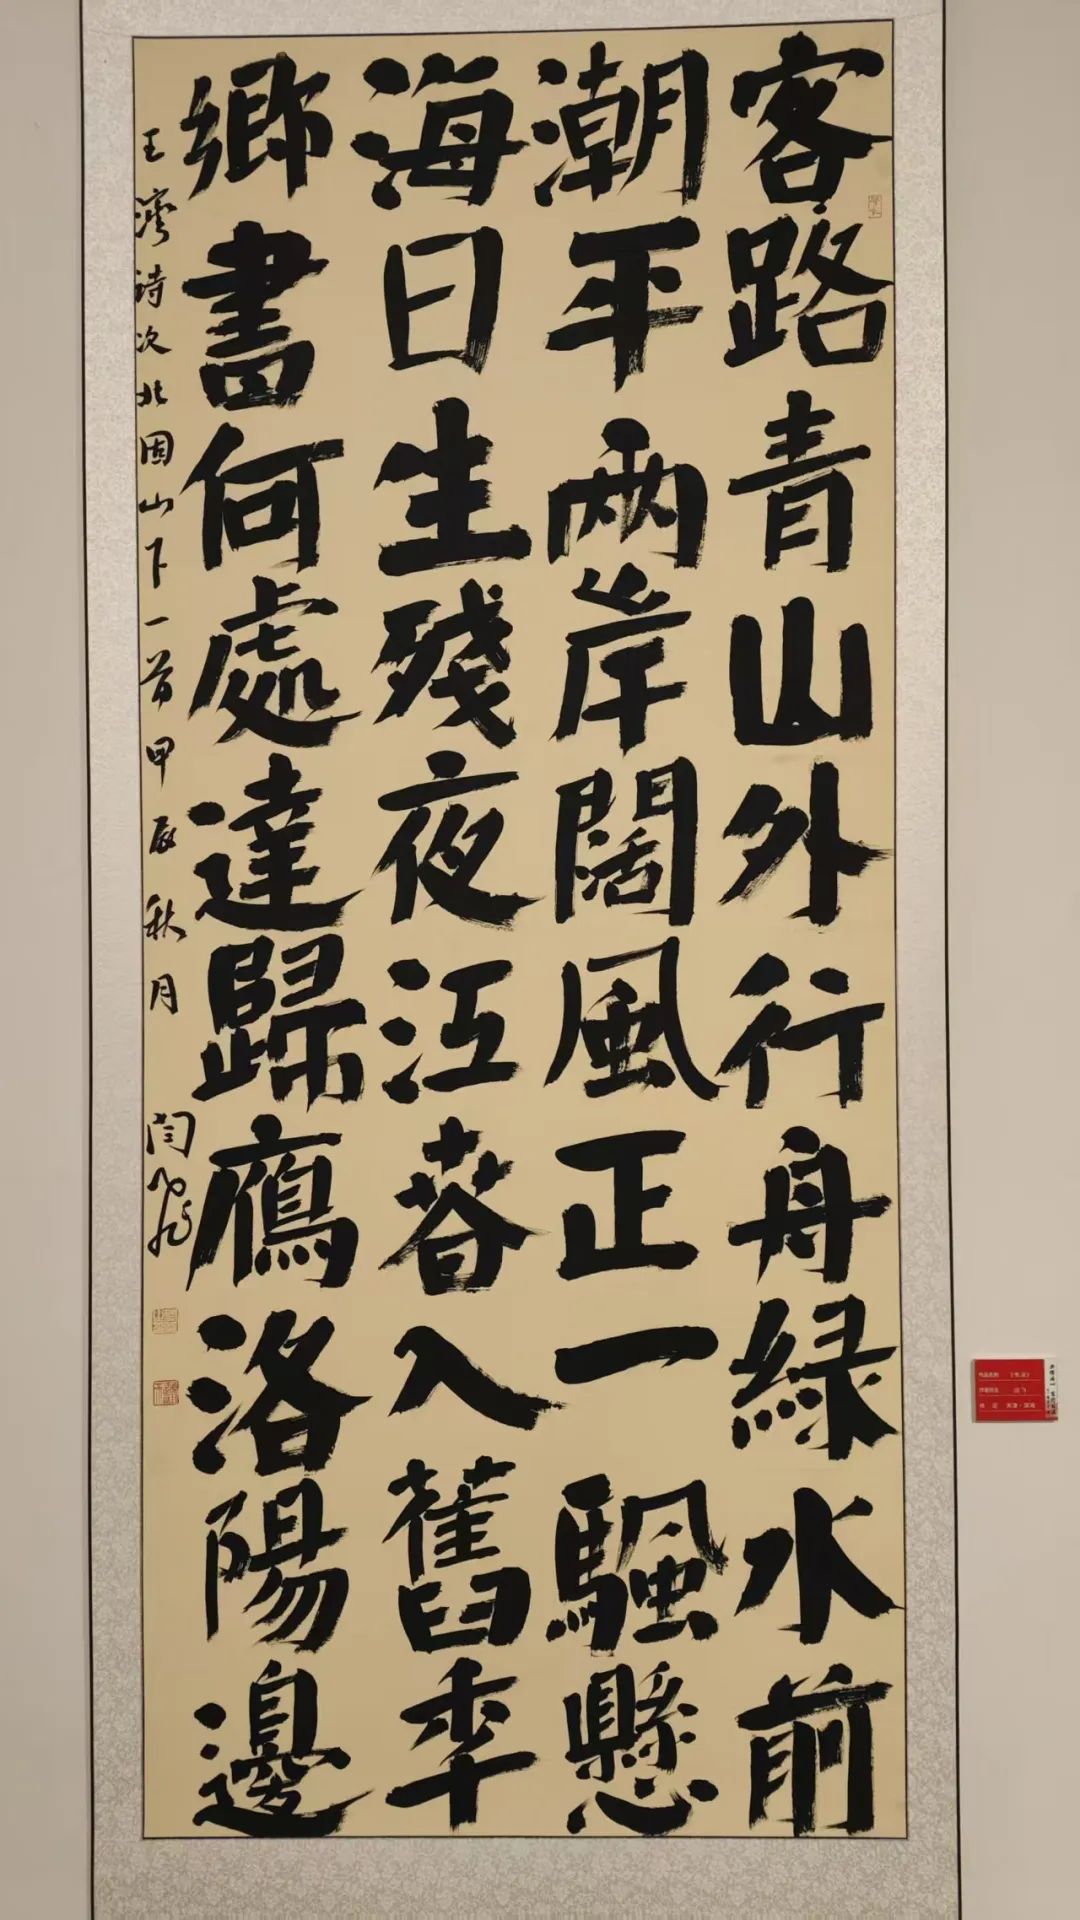 客路青山外行舟綠水前
潮平两岸闊風正一颿懸
海日生殘夜江春入舊年
鄉書何處達歸鴈洛陽邊
王灣詩次北固山下一首甲辰秋月 閆飛